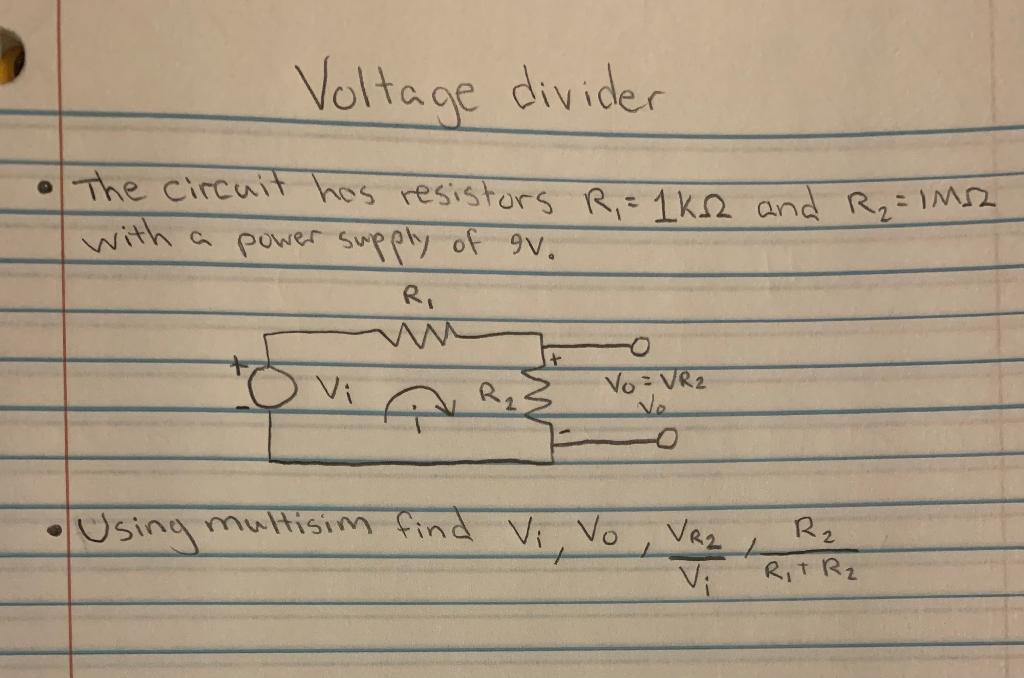 Voltage divider
• The circuit has resistors R₁ = 1kΩ and R₂ = 1MΩ
with a power supply of 9V.
R₁
+
Vi
-
i
R₂
+
Vo = VR2
Vo
-
• Using multisim find Vi, Vo, VR2/Vi, R2/(R1 + R2)